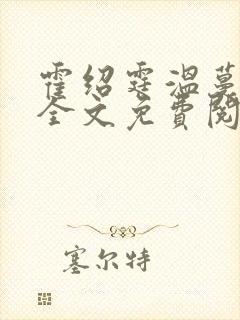 霍绍霆温蔓
全文免费阅
塞尔特